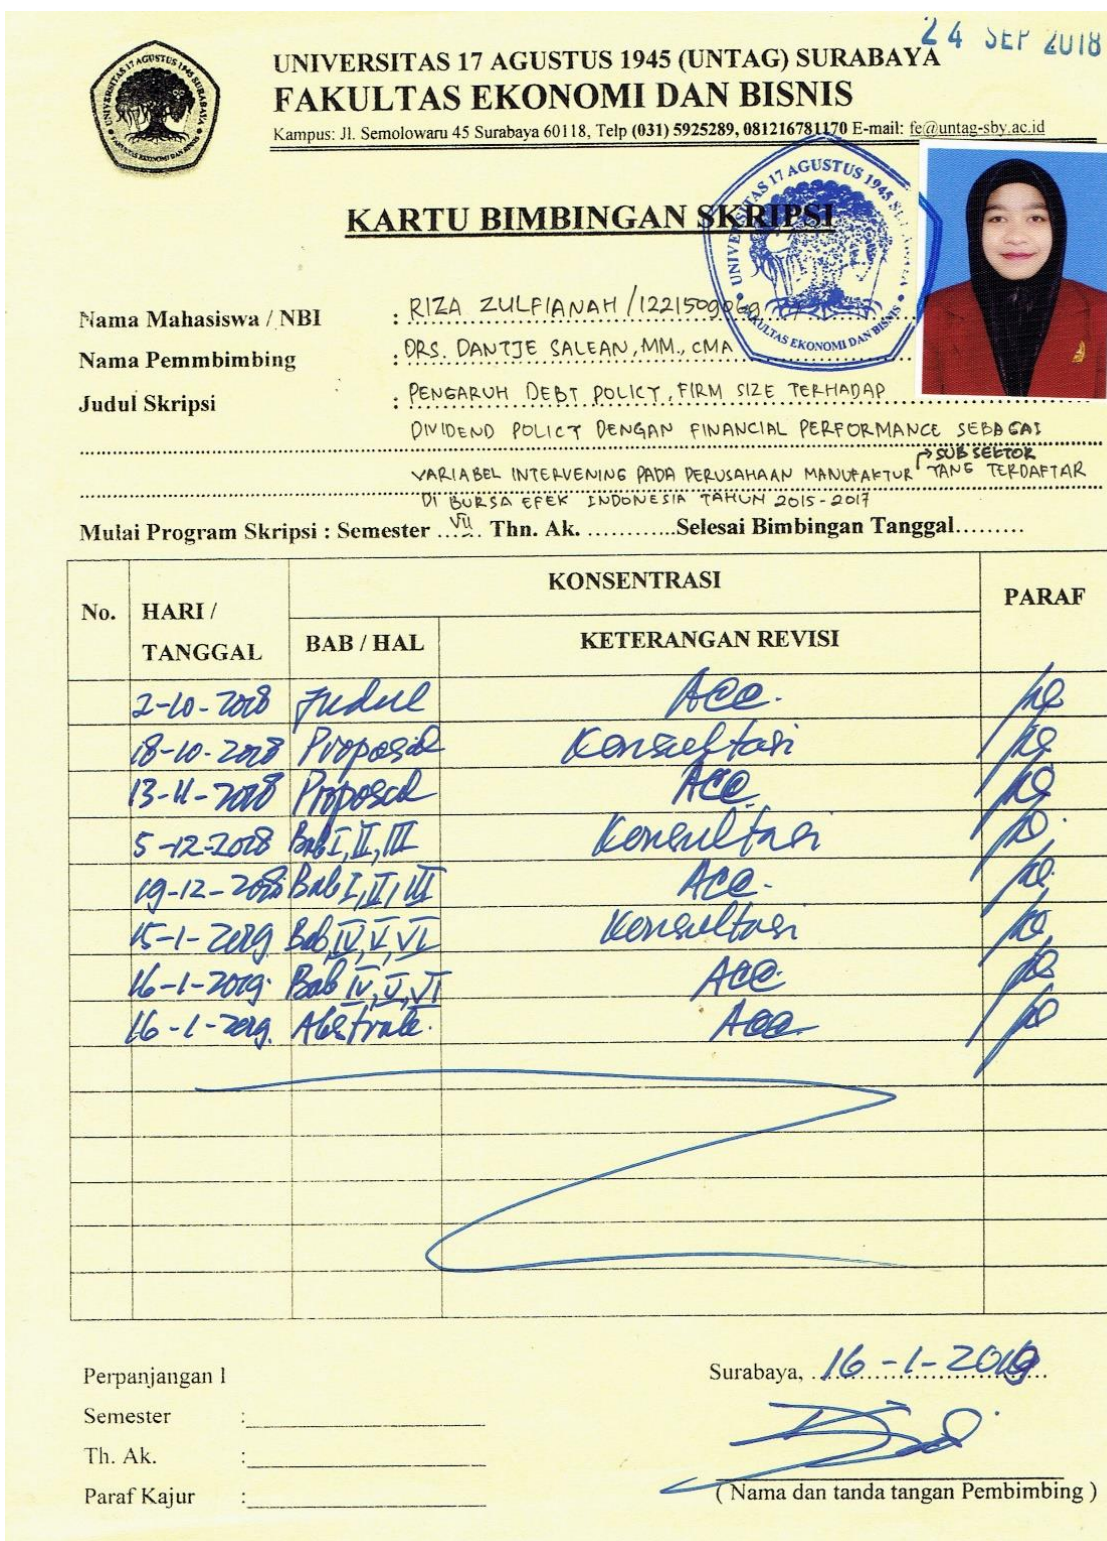 24 SEP 2018
UNIVERSITAS 17 AGUSTUS 1945 (UNTAG) SURABAYA
FAKULTAS EKONOMI DAN BISNIS
Kampus: Jl. Semolowaru 45 Surabaya 60118, Telp (031) 5925289, 081216781170 E-mail: fe@untag-sby.ac.id
KARTU BIMBINGAN SKRIPSI
Nama Mahasiswa / NBI : RIZA ZULFIANAH / 1221509069
Nama Pemmbimbing : DRS. DANTJE SALEAN, MM., CMA
Judul Skripsi : PENGARUH DEBT POLICY, FIRM SIZE TERHADAP
DIVIDEND POLICY DENGAN FINANCIAL PERFORMANCE SEBAGAI
SUB SEKTOR
VARIABEL INTERVENING PADA PERUSAHAAN MANUFAKTUR YANG TERDAFTAR
DI BURSA EFEK INDONESIA TAHUN 2015-2017
Mulai Program Skripsi : Semester ..VII.. Thn. Ak. ............Selesai Bimbingan Tanggal.........
No. HARI / TANGGAL KONSENTRASI PARAF
BAB / HAL KETERANGAN REVISI
2-10-2018 Judul Acc.
18-10-2018 Proposal Konsultasi
13-11-2018 Proposal Acc
5-12-2018 Bab I, II, III Konsultasi
19-12-2018 Bab I, II, III Acc.
15-1-2019. Bab IV, V, VI Konsultasi
16-1-2019. Bab IV, V, VI Acc.
16-1-2019. Abstrak. Acc.
Perpanjangan 1
Semester :
Th. Ak. :
Paraf Kajur :
Surabaya, 16-1-2019
( Nama dan tanda tangan Pembimbing )